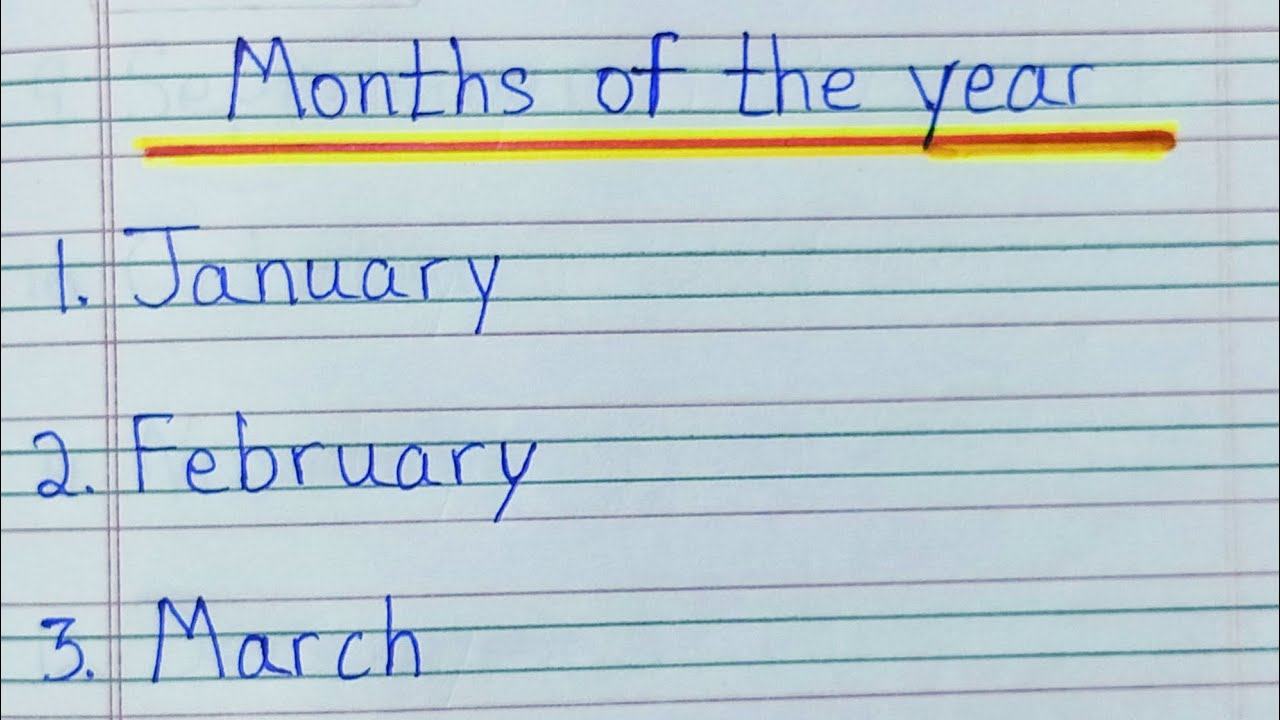 Months of the year
1. January
2. February
3. March